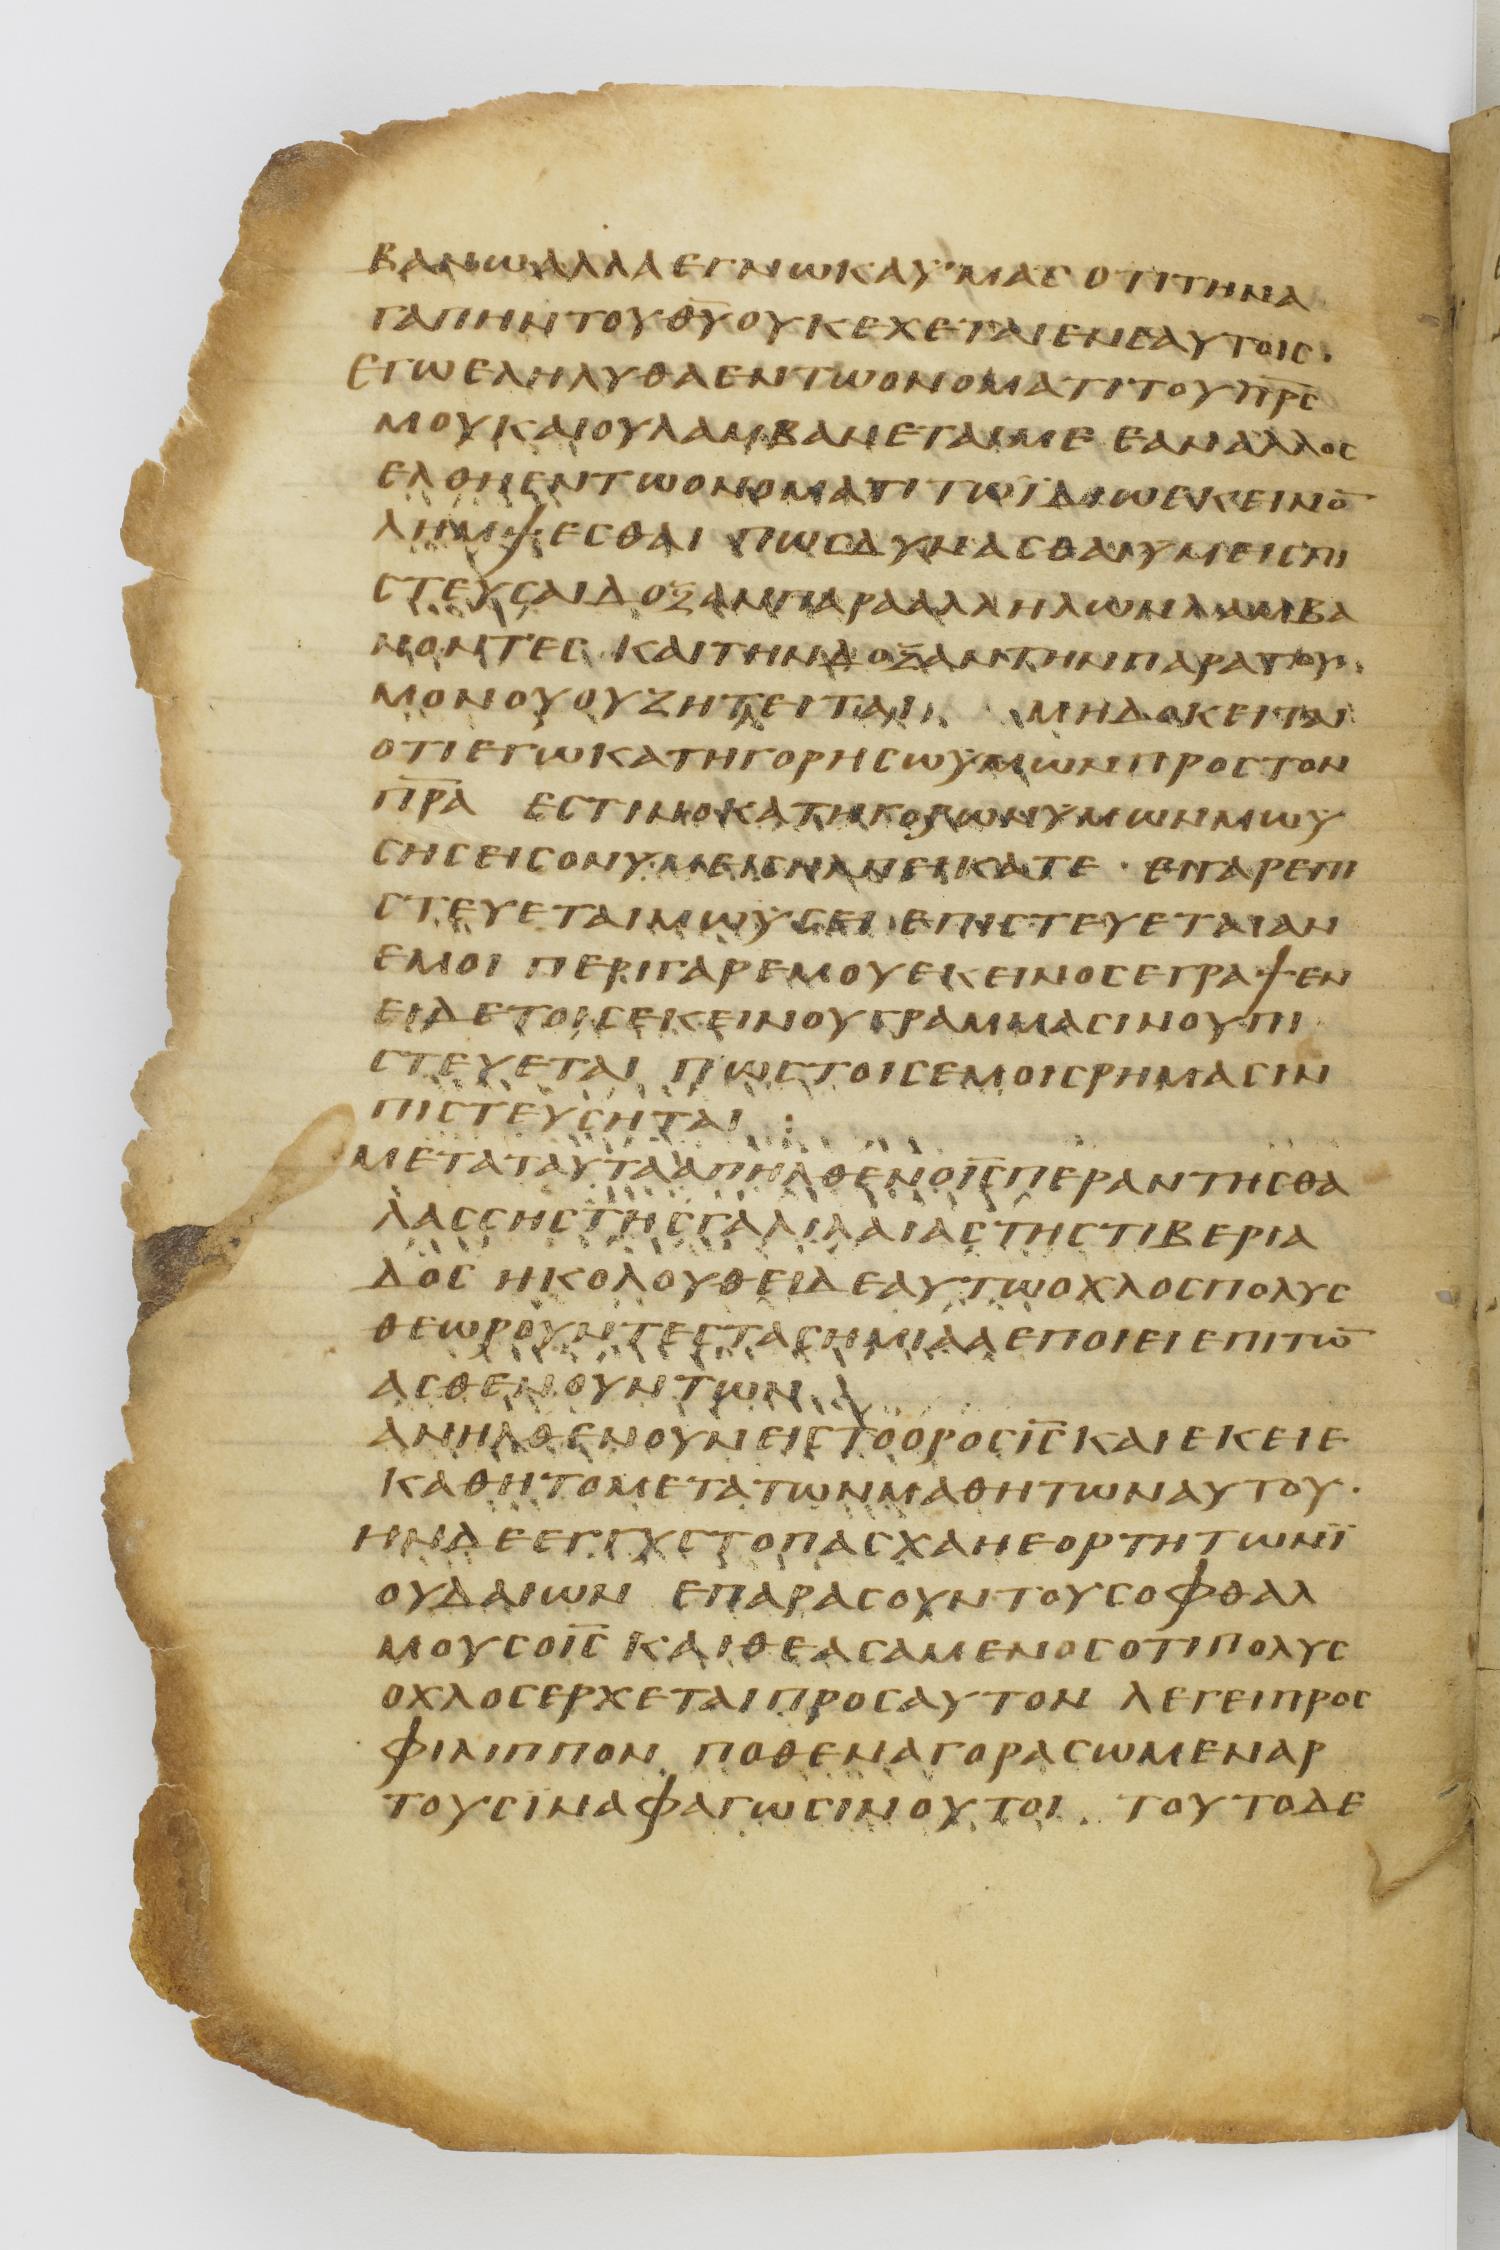 ΒΑΝΩΑΛΛΑΕΓΝΩΚΑΫΜΑΣΟΤΙΤΗΝΑ
ΓΑΠΗΝΤΟΥΘ̅Υ̅ΟΥΚΕΧΕΤΑΙΕΝΕΑΥΤΟΙΣ·
ΕΓΩΕΛΗΛΥΘΑΕΝΤΩΟΝΟΜΑΤΙΤΟΥΠ̅Ρ̅Σ̅
ΜΟΥΚΑΙΟΥΛΑΜΒΑΝΕΤΑΙΜΕ ΕΑΝΑΛΛΟΣ
ΕΛΘΗΕΝΤΩΟΝΟΜΑΤΙΤΩΪΔΙΩΕΚΕΙΝΟ̅
ΛΗΜΨΕΣΘΑΙ ΠΩΣΔΥΝΑΣΘΑΙΥΜΕΙΣΠΙ
ΣΤΕΥΣΑΙΔΟΞΑΝΠΑΡΑΑΛΛΗΛΩΝΛΑΜΒΑ
ΝΟΝΤΕΣ ΚΑΙΤΗΝΔΟΞΑΝΤΗΝΠΑΡΑΤΟΥ
ΜΟΝΟΥΟΥΖΗΤΕΙΤΑΙ ΜΗΔΟΚΕΙΤΑΙ
ΟΤΙΕΓΩΚΑΤΗΓΟΡΗΣΩΫΜΩΝΠΡΟΣΤΟΝ
Π̅Ρ̅Α̅ ΕΣΤΙΝΟΚΑΤΗΓΟΡΩΝΫΜΩΝΜΩΫ
ΣΗΣΕΙΣΟΝΥΜΕΙΣΗΛΠΕΙΚΑΤΕ · ΕΙΓΑΡΕΠΙ
ΣΤΕΥΕΤΑΙΜΩΫΣΕΙ ΕΠΙΣΤΕΥΕΤΑΙΑΝ
ΕΜΟΙ ΠΕΡΙΓΑΡΕΜΟΥΕΚΕΙΝΟΣΕΓΡΑΨΕΝ
ΕΙΔΕΤΟΙΣΕΚΕΙΝΟΥΓΡΑΜΜΑΣΙΝΟΥΠΙ
ΣΤΕΥΕΤΑΙ ΠΩΣΤΟΙΣΕΜΟΙΣΡΗΜΑΣΙΝ
ΠΙΣΤΕΥΣΗΤΑΙ :
ΜΕΤΑΤΑΥΤΑΑΠΗΛΘΕΝΟΙ̅Σ̅ΠΕΡΑΝΤΗΣΘΑ
ΛΑΣΣΗΣΤΗΣΓΑΛΙΛΑΙΑΣΤΗΣΤΙΒΕΡΙΑ
ΔΟΣ ΗΚΟΛΟΥΘΕΙΔΕΑΥΤΩΟΧΛΟΣΠΟΛΥΣ
ΘΕΩΡΟΥΝΤΕΣΤΑΣΗΜΙΑΑΕΠΟΙΕΙΕΠΙΤΩ̅
ΑΣΘΕΝΟΥΝΤΩΝ
ΑΝΗΛΘΕΝΟΥΝΕΙΣΤΟΟΡΟΣΙ̅Σ̅ΚΑΙΕΚΕΙΕ
ΚΑΘΗΤΟΜΕΤΑΤΩΝΜΑΘΗΤΩΝΑΥΤΟΥ·
ΗΝΔΕΕΓΓΥΣΤΟΠΑΣΧΑΗΕΟΡΤΗΤΩΝΪ
ΟΥΔΑΙΩΝ ΕΠΑΡΑΣΟΥΝΤΟΥΣΟΦΘΑΛ
ΜΟΥΣΟΙ̅Σ̅ ΚΑΙΘΕΑΣΑΜΕΝΟΣΟΤΙΠΟΛΥΣ
ΟΧΛΟΣΕΡΧΕΤΑΙΠΡΟΣΑΥΤΟΝ ΛΕΓΕΙΠΡΟΣ
ΦΙΛΙΠΠΟΝ ΠΟΘΕΝΑΓΟΡΑΣΩΜΕΝΑΡ
ΤΟΥΣΪΝΑΦΑΓΩΣΙΝΟΥΤΟΙ ΤΟΥΤΟΔΕ